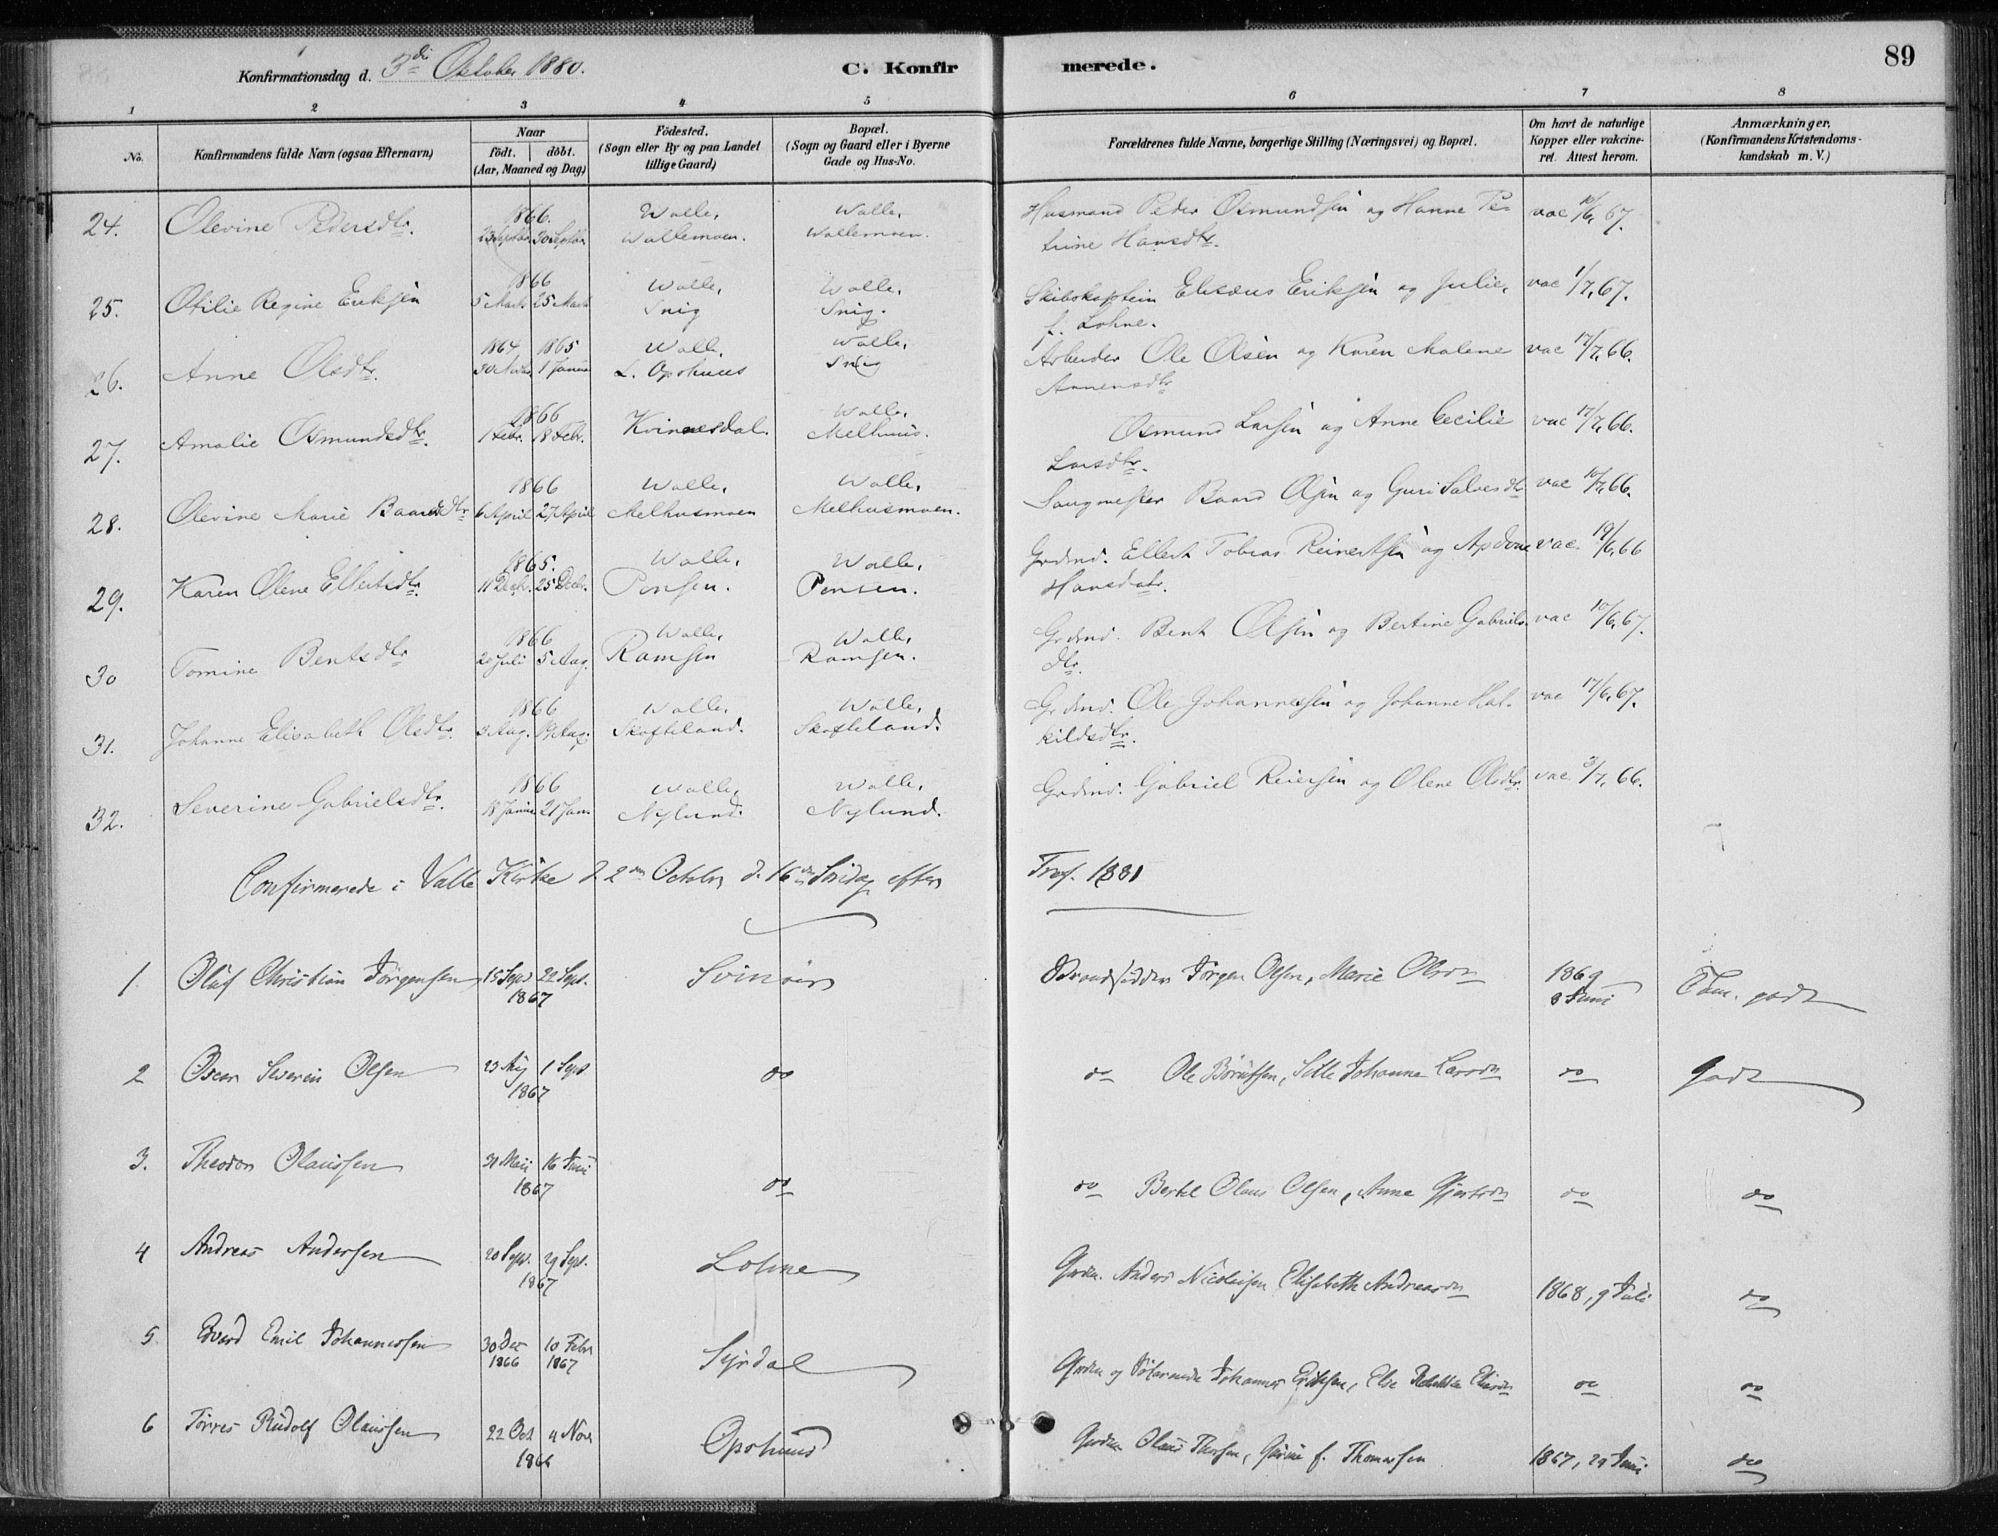 89
Konfirmationsdag d. 3die Oktober 1880.
C. Konfirmerede.
1 2 3 4 5 6 7 8
No.
Konfirmandens fulde Navn (ogsaa Efternavn)
Naar
födt. döbt.
(Aar, Maaned og Dag)
Födested.
(Sogn eller By og paa Landet
tillige Gaard)
Bopæl.
(Sogn og Gaard eller i Byerne
Gade og Hus-No.
Forældrenes fulde Navne, borgerlige Stilling (Næringsvei) og Bopæl.
Om havt de naturlige
Kopper eller vakcine-
ret. Attest herom.
Anmærkninger.
(Konfirmandens Kristendoms-
kundskab m. V.)
1866. Walle, Walle, Husmand Peder Osmundsen og Hanne Pe- vac 10/6, 67.
24. Olevine Pedersdtr. 13 Septbr. 30 Septbr. Wallemoen. Wallemoen. trine Hansdtr.
1866 Walle, Walle, Skibskaptein Elisæus Eriksen og Julie, vac 1/7, 67.
25. Otilie Regine Eriksen 5 Marts 25 Marts Snig Snig. f. Lohne.
1864 1865 Walle, Walle, Arbeider Ole Olsen og Karen Malene vac 17/7, 66.
26. Anne Olsdtr. 30 1 Januar L. Opshuus Snig
1866 Walle, Osmund Larsen og Anne Cecilie vac 17/7, 66.
27. Amalie Osmundsdtr. 1 Febr. 18 Febr. Kvinnesdal. Melhuus. Larsdtr.
1866 Walle, Walle, Saugmester Baard Olsen og Guri Salvesdtr vac 10/7, 66.
28. Olevine Marie Baardsdtr 6 April 27 April Melhusmoen Melhusmoen.
1865. Walle, Walle, Grdmd. Ellert Tobias Reinertsen og vac. 19/6, 66
29. Karen Olene Ellertsdtr. 11 Decbr. 25 Decbr. Ponsen. Ponsen. Hansdatr.
1866 Walle, Walle, Grdmd. Bent Olsen og Bertine Gabriels- vac 10/6, 67.
30 Tomine Bentsdtr 20 Juli 5 Aug. Ramsen Ramsen. dtr.
1866 Walle, Walle, Grdmd. Ole Johannessen og Johanne Hal- vac 17/6, 67.
31. Johanne Elisabeth Olsdtr. 5 Aug. 19 Aug. Skofteland. Skofteland. kildsdtr.
1866 Walle, Walle, Grdmd. Gabriel Reiersen og Olene Olsdtr. vac 3/7, 66.
32. Severine Gabrielsdtr. 18 Januar 21 Jan. Nylund. Nylund.
Confirmerede i Valle Kirke d 2den October d. 16de Søndag efter Tref. 1881
1. Oluf Christian Jørgensen 15 Sept 22 Sept. Svinøer Strandsidder Jørgen Olsen, Marie Olsdr 1869
1867 8 Juni Tem. godt
2 Oscar Severin Olsen 23 Aug 1 Sept do do Ole Børufsen, Johanne Larsdr do Godt
1867
3. Theodor Olaussen 31 Maii 16 Juni do do Bertel Olaus Olsen, Anne Gjertsdr do do
1867
4 Andreas Andersen 20 Sept. 29 Sept. Lohne Grdm. Anders Nicolaisen Elisabeth Andreasdr 1868, 9 Juli do
1867
5 Edvard Emil Johannessen 30 Dec 10 Febr Syrdal Grdm og Johannes Eriksen, Else do do
1866 1867
6 Tørres Rudolf Olaussen 22 Oct 4 Nov Opshuus Grdm Olaus f. Thomassen 1867, 29 Juni do
1866